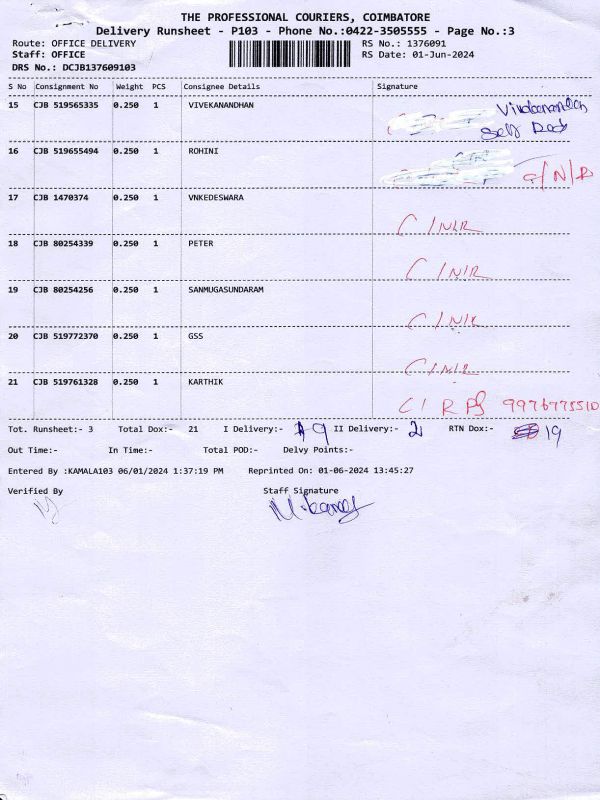 THE PROFESSIONAL COURIERS, COIMBATORE
Delivery Runsheet - P103 - Phone No.:0422-3505555 - Page No.:3
Route: OFFICE DELIVERY RS No.: 1376091
Staff: OFFICE RS Date: 01-Jun-2024
DRS No.: DCJB137609103
S No Consignment No Weight PCS Consignee Details Signature
15 CJB 519565335 0.250 1 VIVEKANANDHAN Vivekanandan
Self
16 CJB 519655494 0.250 1 ROHINI C/N/R
17 CJB 1470374 0.250 1 VNKEDESWARA C/N/R
18 CJB 80254339 0.250 1 PETER C/N/R
19 CJB 80254256 0.250 1 SANMUGASUNDARAM C/N/R
20 CJB 519772370 0.250 1 GSS C/N/R
21 CJB 519761328 0.250 1 KARTHIK C/R 9976775510
Tot. Runsheet:- 3 Total Dox:- 21 I Delivery:- 9 II Delivery:- 2 RTN Dox:- 19
Out Time:- In Time:- Total POD:- Delvy Points:-
Entered By :KAMALA103 06/01/2024 1:37:19 PM Reprinted On: 01-06-2024 13:45:27
Verified By Staff Signature